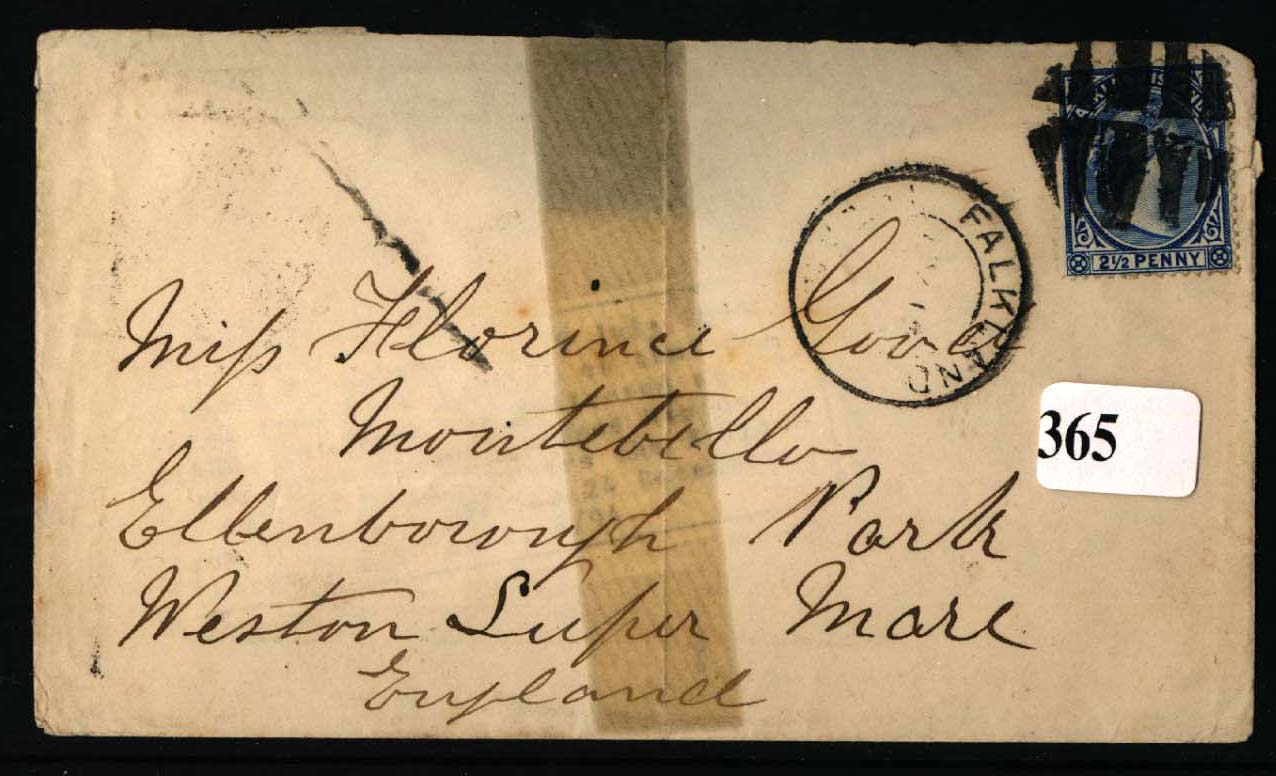 2½ PENNY
FALKLAND
Miss Florence
365
Montebello
Ellenborough Park
Weston Super Mare
England